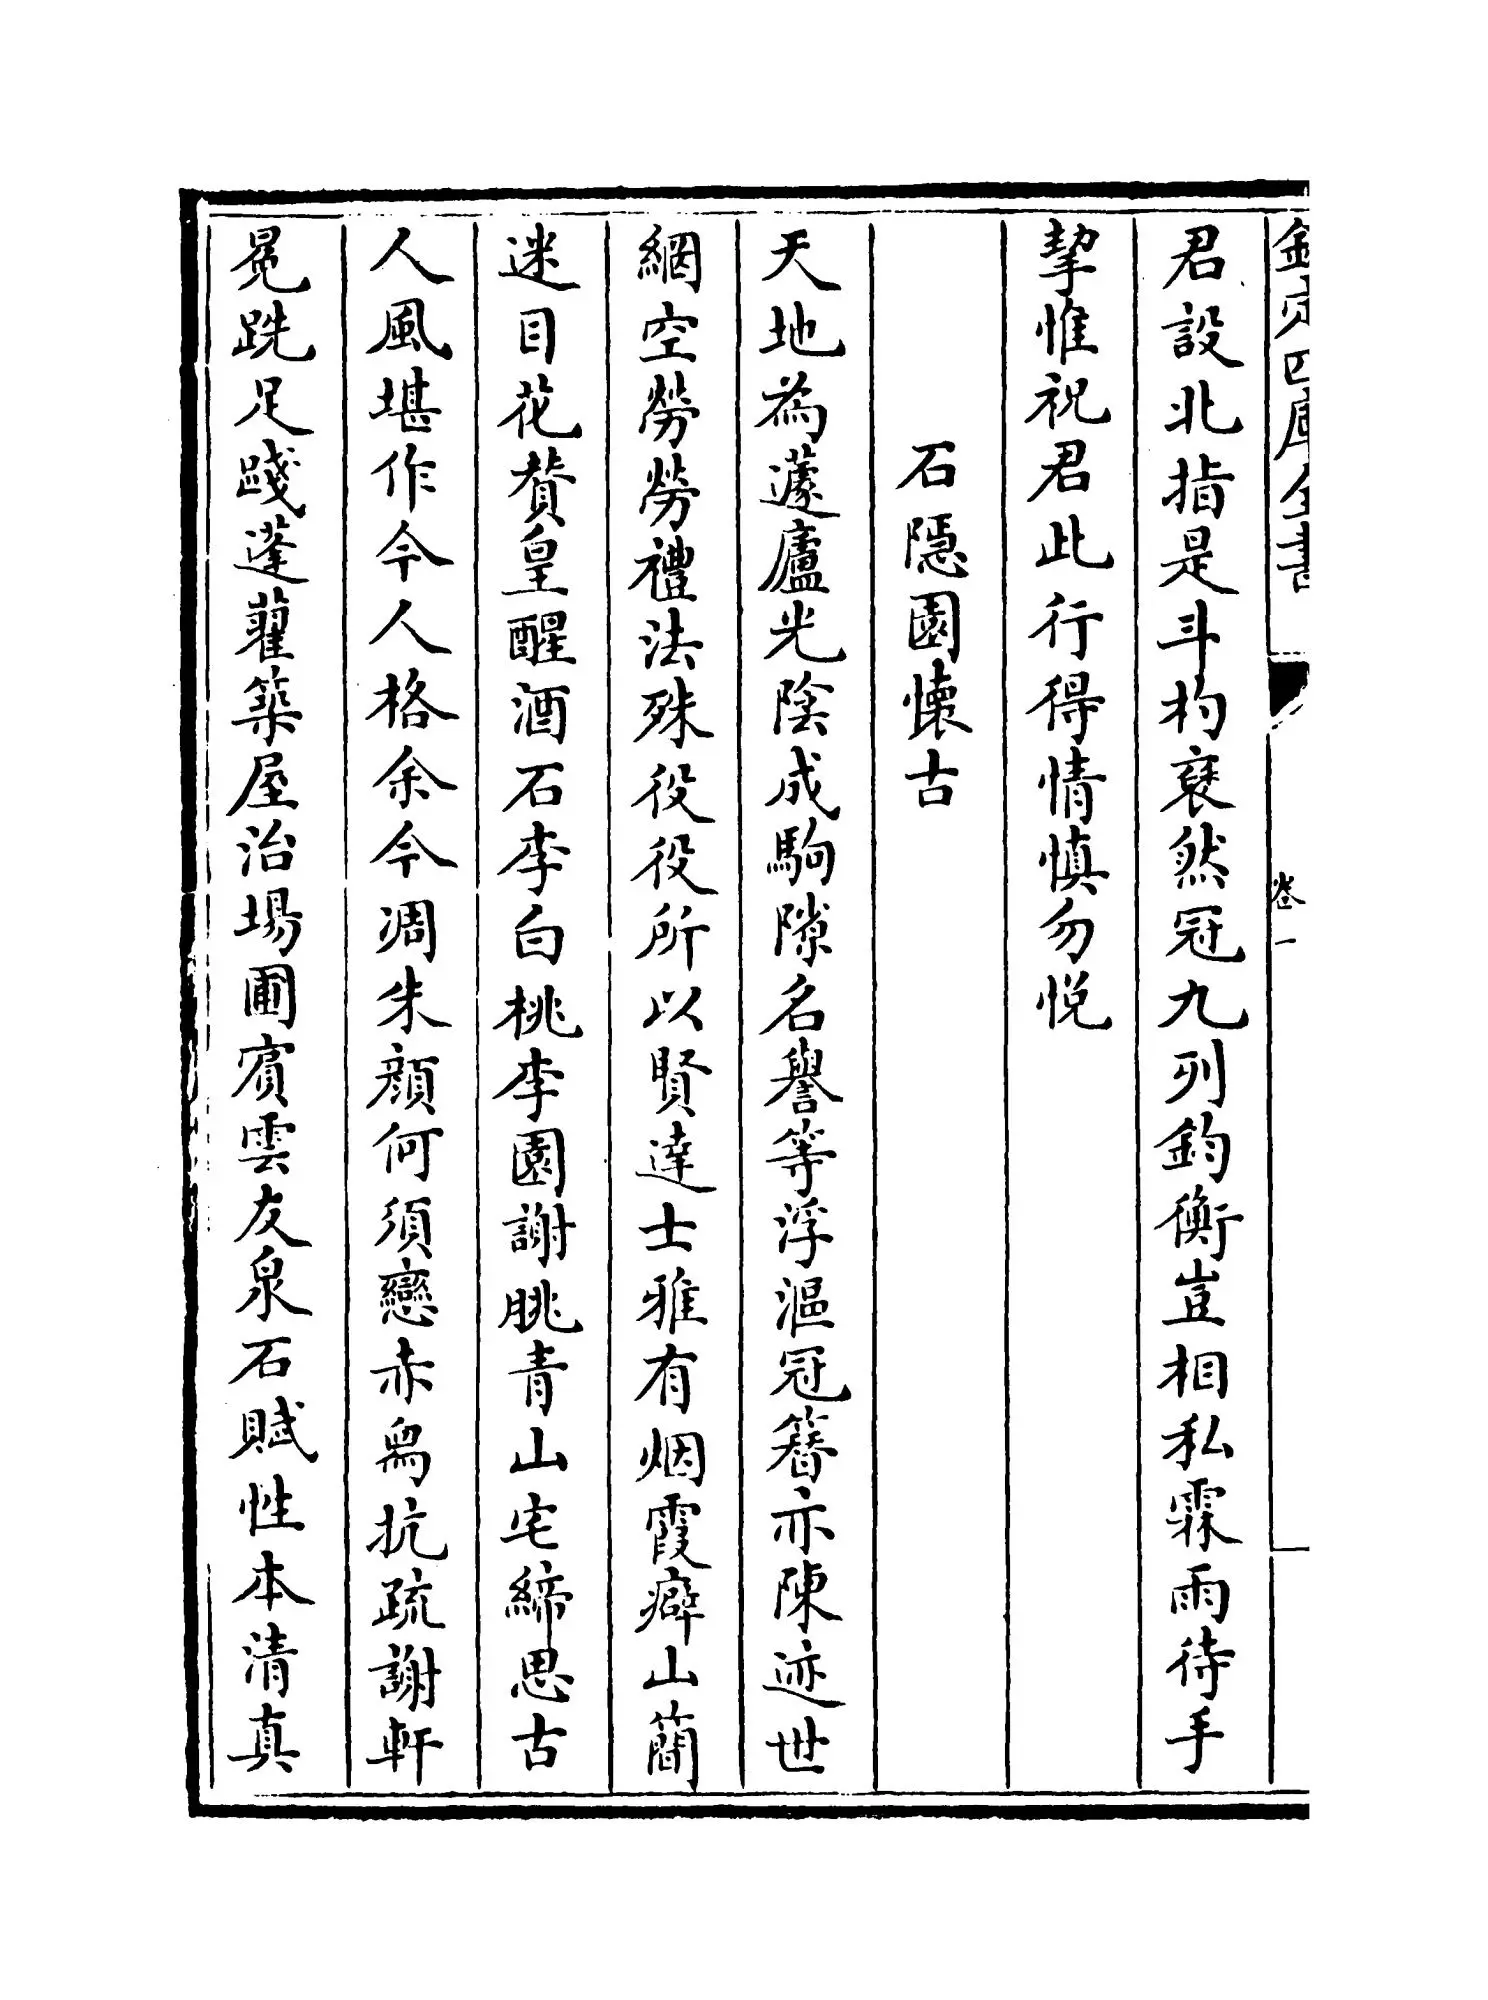 欽定四庫全書
卷一
君設北指是斗杓裒然冠九列鈞衡豈相私霖雨待手
挈惟祝君此行得情慎勿悅
石隱園懷古
天地為蘧廬光陰成駒隙名譽等浮漚冠簪亦陳迹世
網空勞勞禮法殊役役所以賢達士雅有烟霞癖山簡
迷目花賛皇醒酒石李白桃李園謝朓青山宅締思古
人風堪作今人格余今凋朱顔何須戀赤舄抗疏謝軒
冕跣足踐蓬藋築屋治場圃賓雲友泉石賦性本清真